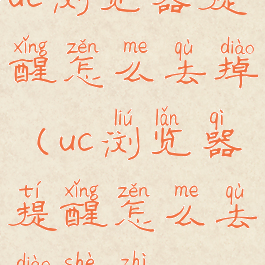 uc浏览器提
xǐng zěn me qù diào
醒怎么去掉
liú lǎn qì
(uc浏览器
tí xǐng zěn me qù
提醒怎么去
diào shè zhì